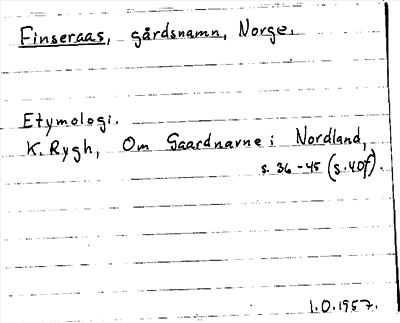 Finseraas, gårdsnamn, Norge.
Etymologi.
K. Rygh, Om Gaardnavne i Nordland,
s. 36-45 (s. 40f).
1.O.1957.